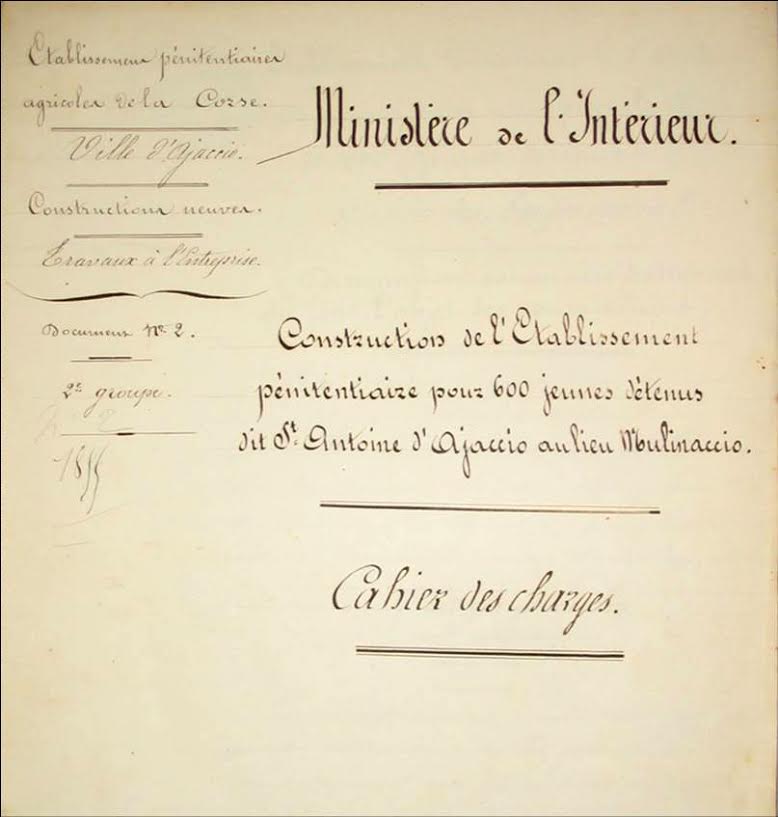 Etablissemens pénitentiaires
agricoles de la Corse.
Ville d'Ajaccio.
Constructions neuves.
Travaux à l'Entreprise.
Document No. 2.
2e groupe.
1855
Ministère de l'Intérieur.
Construction de l'Etablissement
pénitentiaire pour 600 jeunes détenus
dit St. Antoine d'Ajaccio au lieu Mulinaccio.
Cahier des charges.